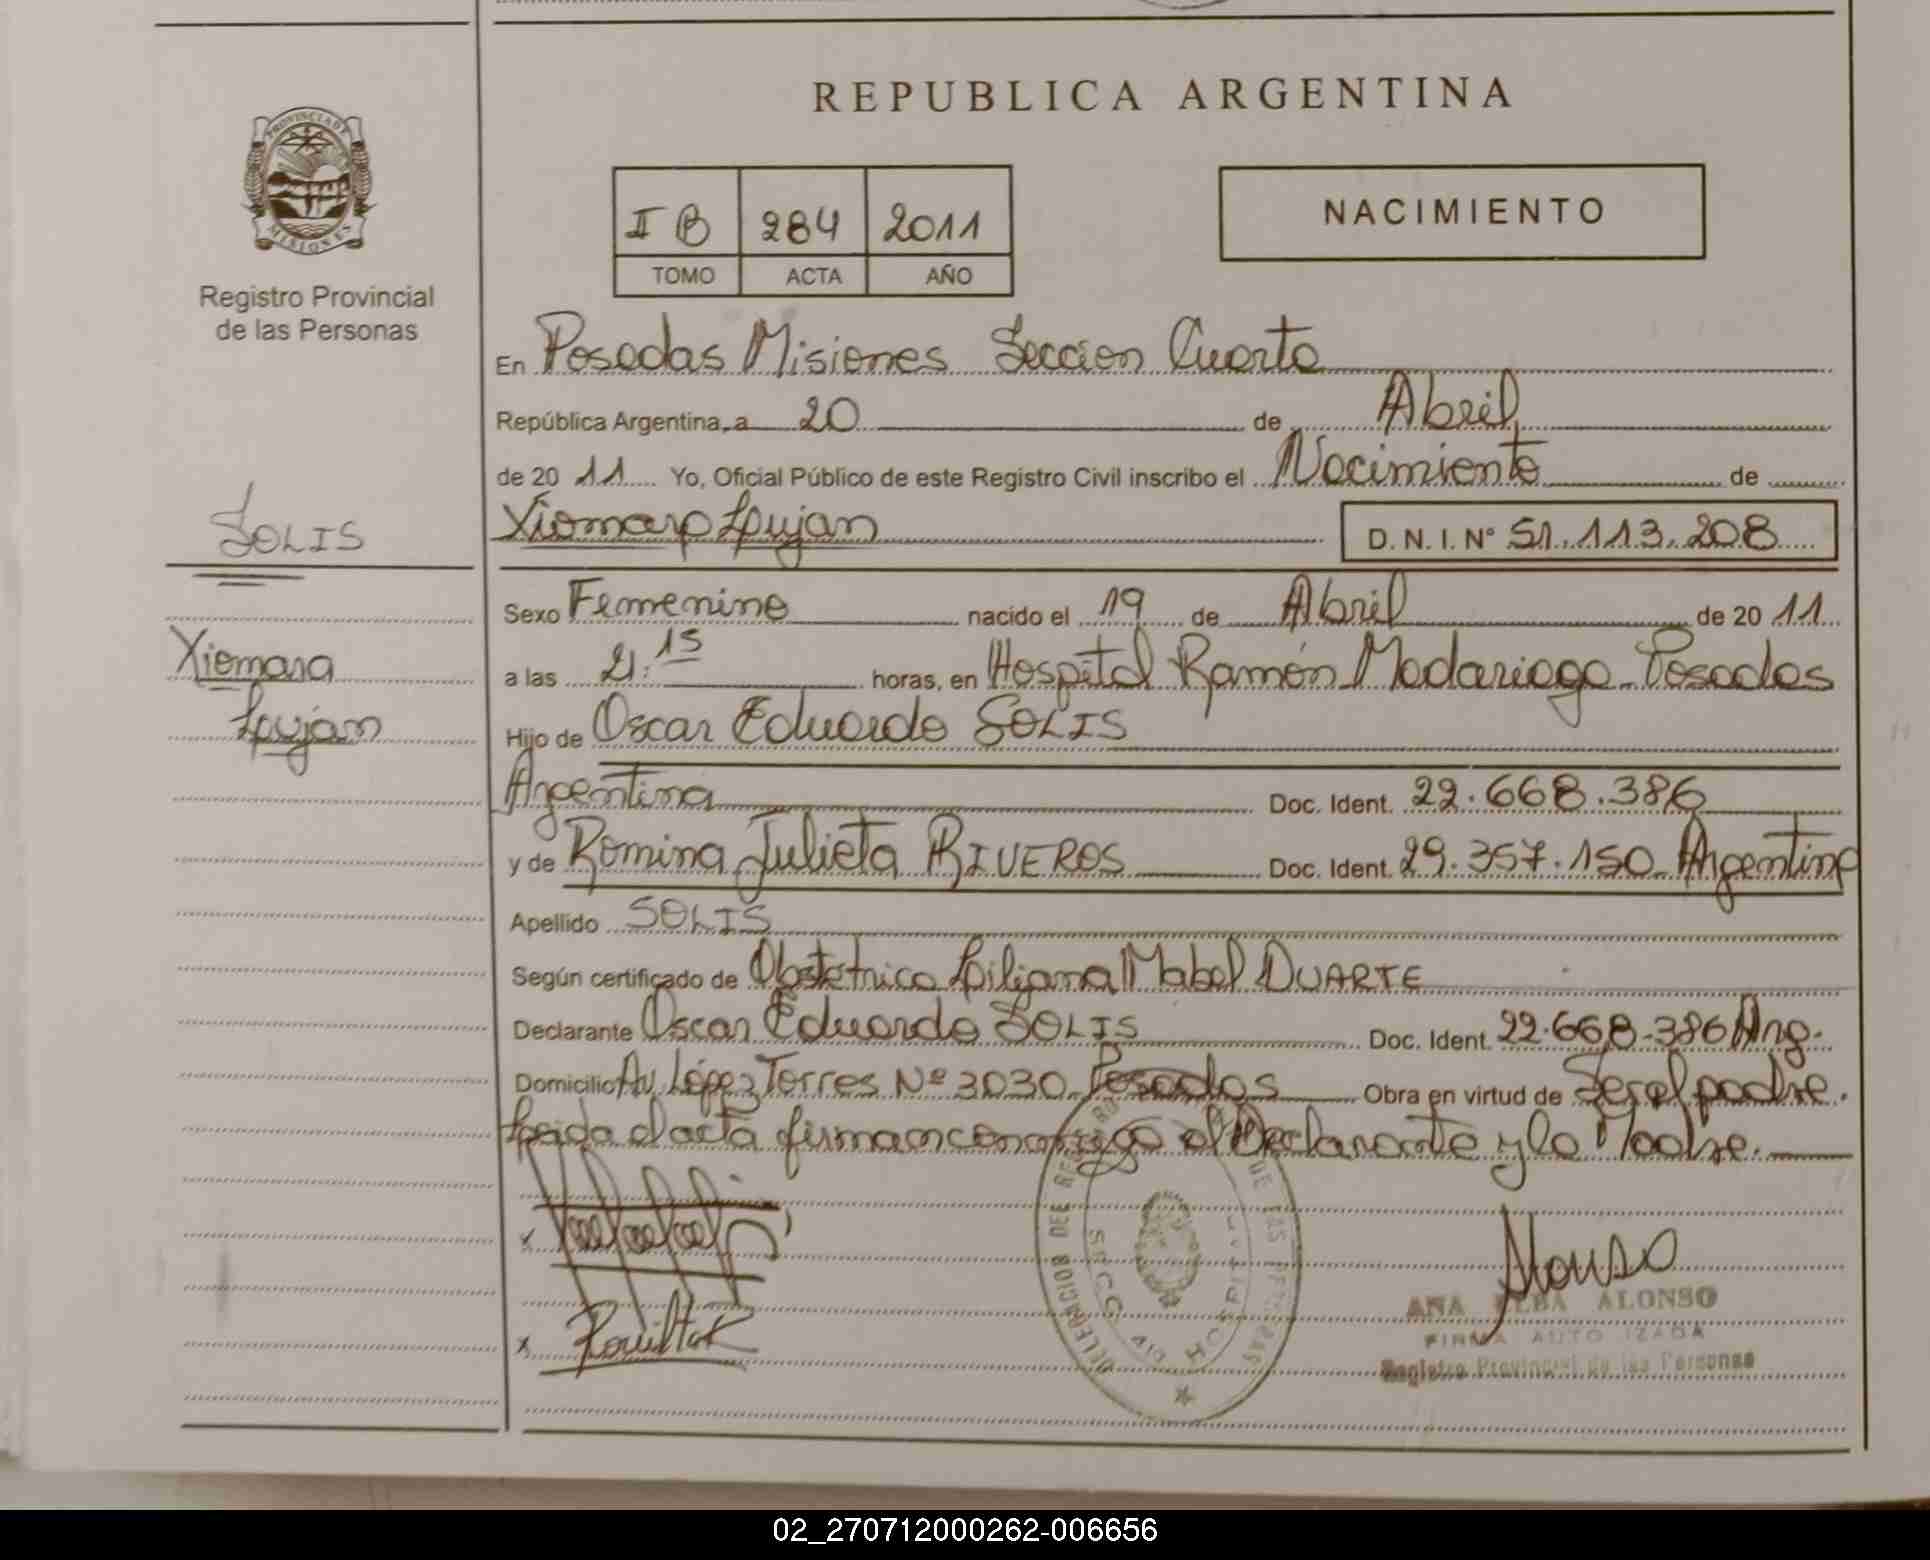 REPUBLICA ARGENTINA
PROVINCIA DE
MISIONES
Registro Provincial
de las Personas
II B 284 2011
TOMO ACTA AÑO
NACIMIENTO
En Posadas Misiones Seccion Cuarta
República Argentina, a 20 de Abril
de 20 11 Yo, Oficial Público de este Registro Civil inscribo el Nacimiento de
Xiomara Lujan D. N. I. Nº 51.113.208
SOLIS
Xiomara
Lujan
Sexo Femenino nacido el 19 de Abril de 20 11
a las 21:15 horas, en Hospital Ramón Madariaga Posadas
Hijo de Oscar Eduardo SOLIS
Argentina Doc. Ident. 22.668.386
y de Romina Julieta RIVEROS Doc. Ident. 29.357.150 Argentina
Apellido SOLIS
Según certificado de Obstetrica Liliana Mabel DUARTE
Declarante Oscar Eduardo SOLIS Doc. Ident. 22.668.386 Arg.
Domicilio Av. López Torres Nº 3030 Posadas Obra en virtud de Ser el padre.
Leida el acta firman conmigo el Declarante y la Madre.
x
x
SECC 4ta HOSPITAL
Alonso
ANA ELBA ALONSO
FIRMA AUTORIZADA
Registro Provincial de las Personas
02_270712000262-006656